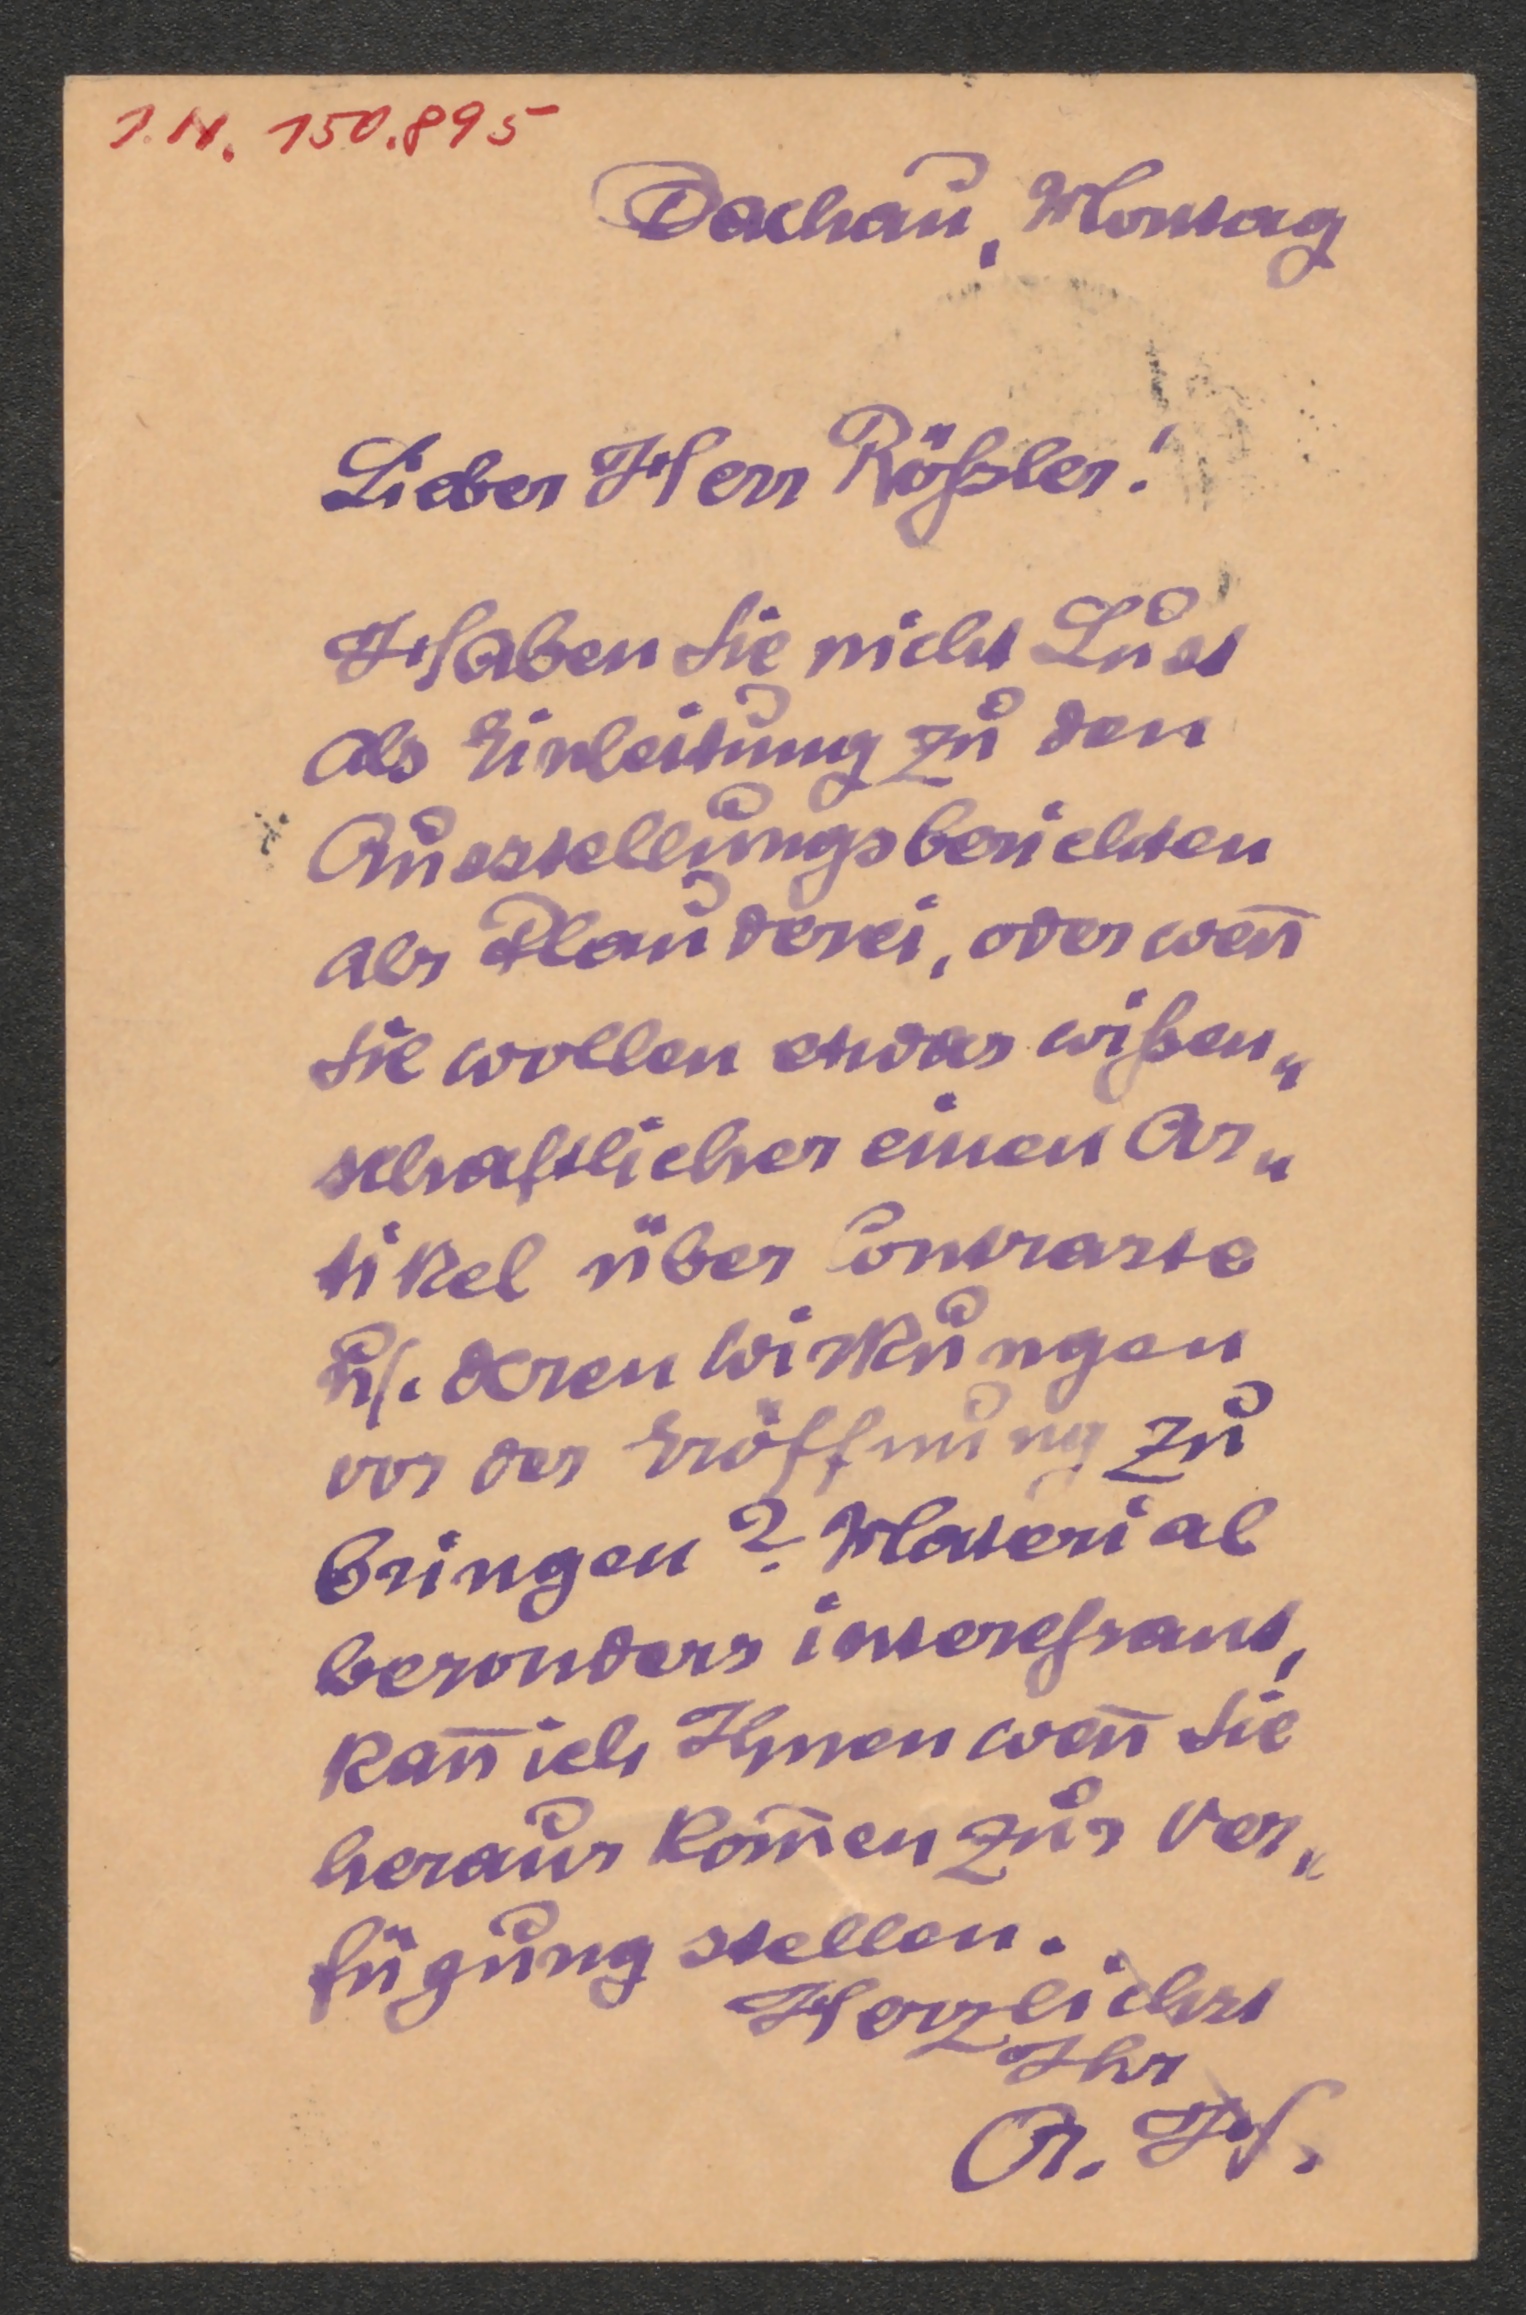 I.N. 150.895
Dachau, Montag
Lieber Herr Rößler!
Haben Sie nicht Lust
als Einleitung zu den
Ausstellungsberichten
als Plauderei, oder wen̅
Sie wollen etwas wißen„
schaftlicher einen Ar„
tikel über Contraste
u/. deren Wirkungen
vor der Eröffnung zu
bringen? Material
besonders interessant,
kan̅ ich Ihnen wen̅ Sie
heraus kom̅en zur Ver„
fügung stellen.
Herzlichst
Ihr
A. H.